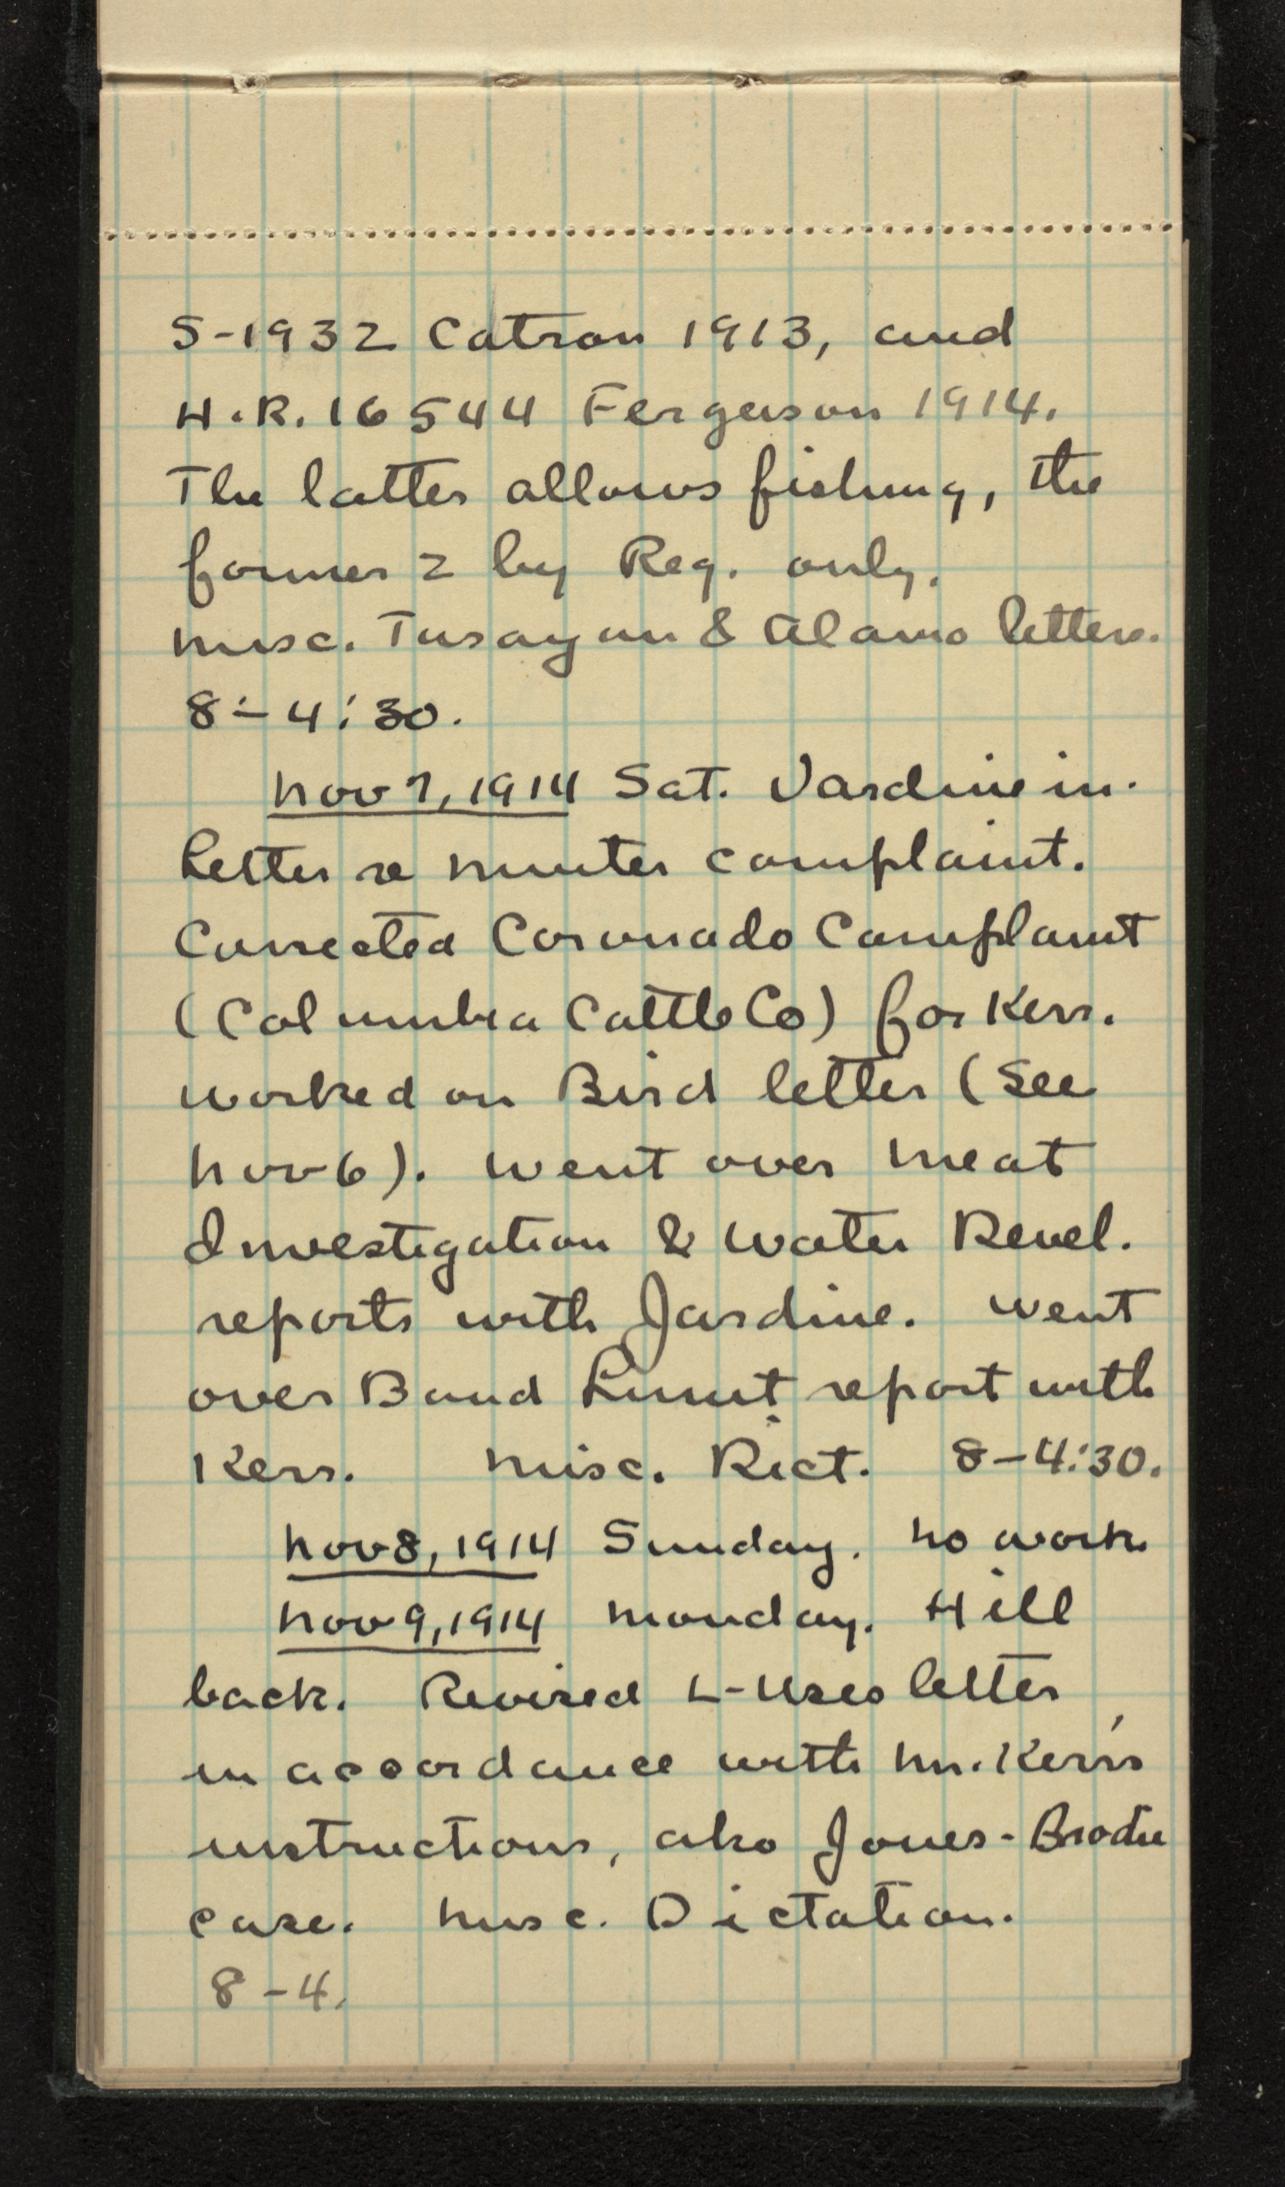 S-1932 Catron 1913, and
H.R. 16544 Ferguson 1914.
The latter allows fishing, the
former 2 by Reg. only.
Misc. Tusayan & Alamo letters.
8-4:30.
Nov 7, 1914 Sat. Jardine in.
Letter re Munter complaint.
Corrected Coronado Complaint
(Columbia Cattle Co) for Kerr.
Worked on Bird letter (See
Nov 6). Went over Meat
Investigation & Water Devel.
reports with Jardine. Went
over Band Limit report with
Kerr. Misc. Dict. 8-4:30.
Nov 8, 1914 Sunday. No work
Nov 9, 1914 Monday. Hill
back. Revised L-Uses letter
in accordance with Mr. Kerr's
instructions, also Jones-Brodie
case. Misc. Dictation.
8-4.